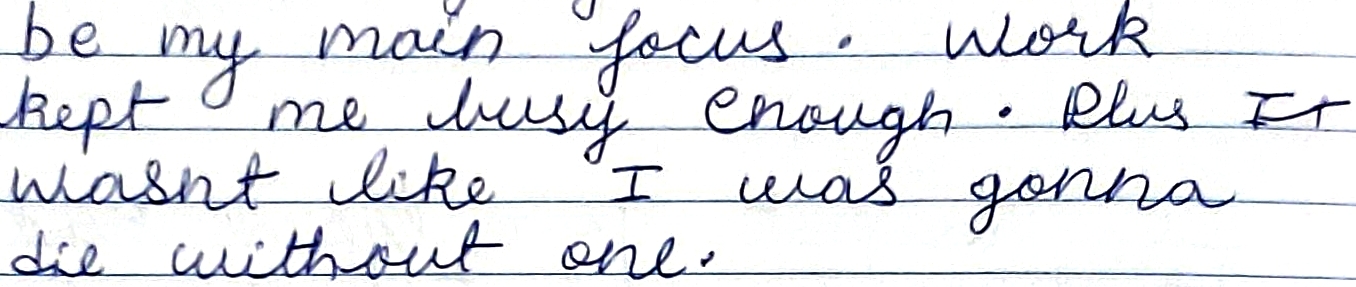 be my main focus. Work
kept me busy enough. Plus It
wasnt like I was gonna
die without one.